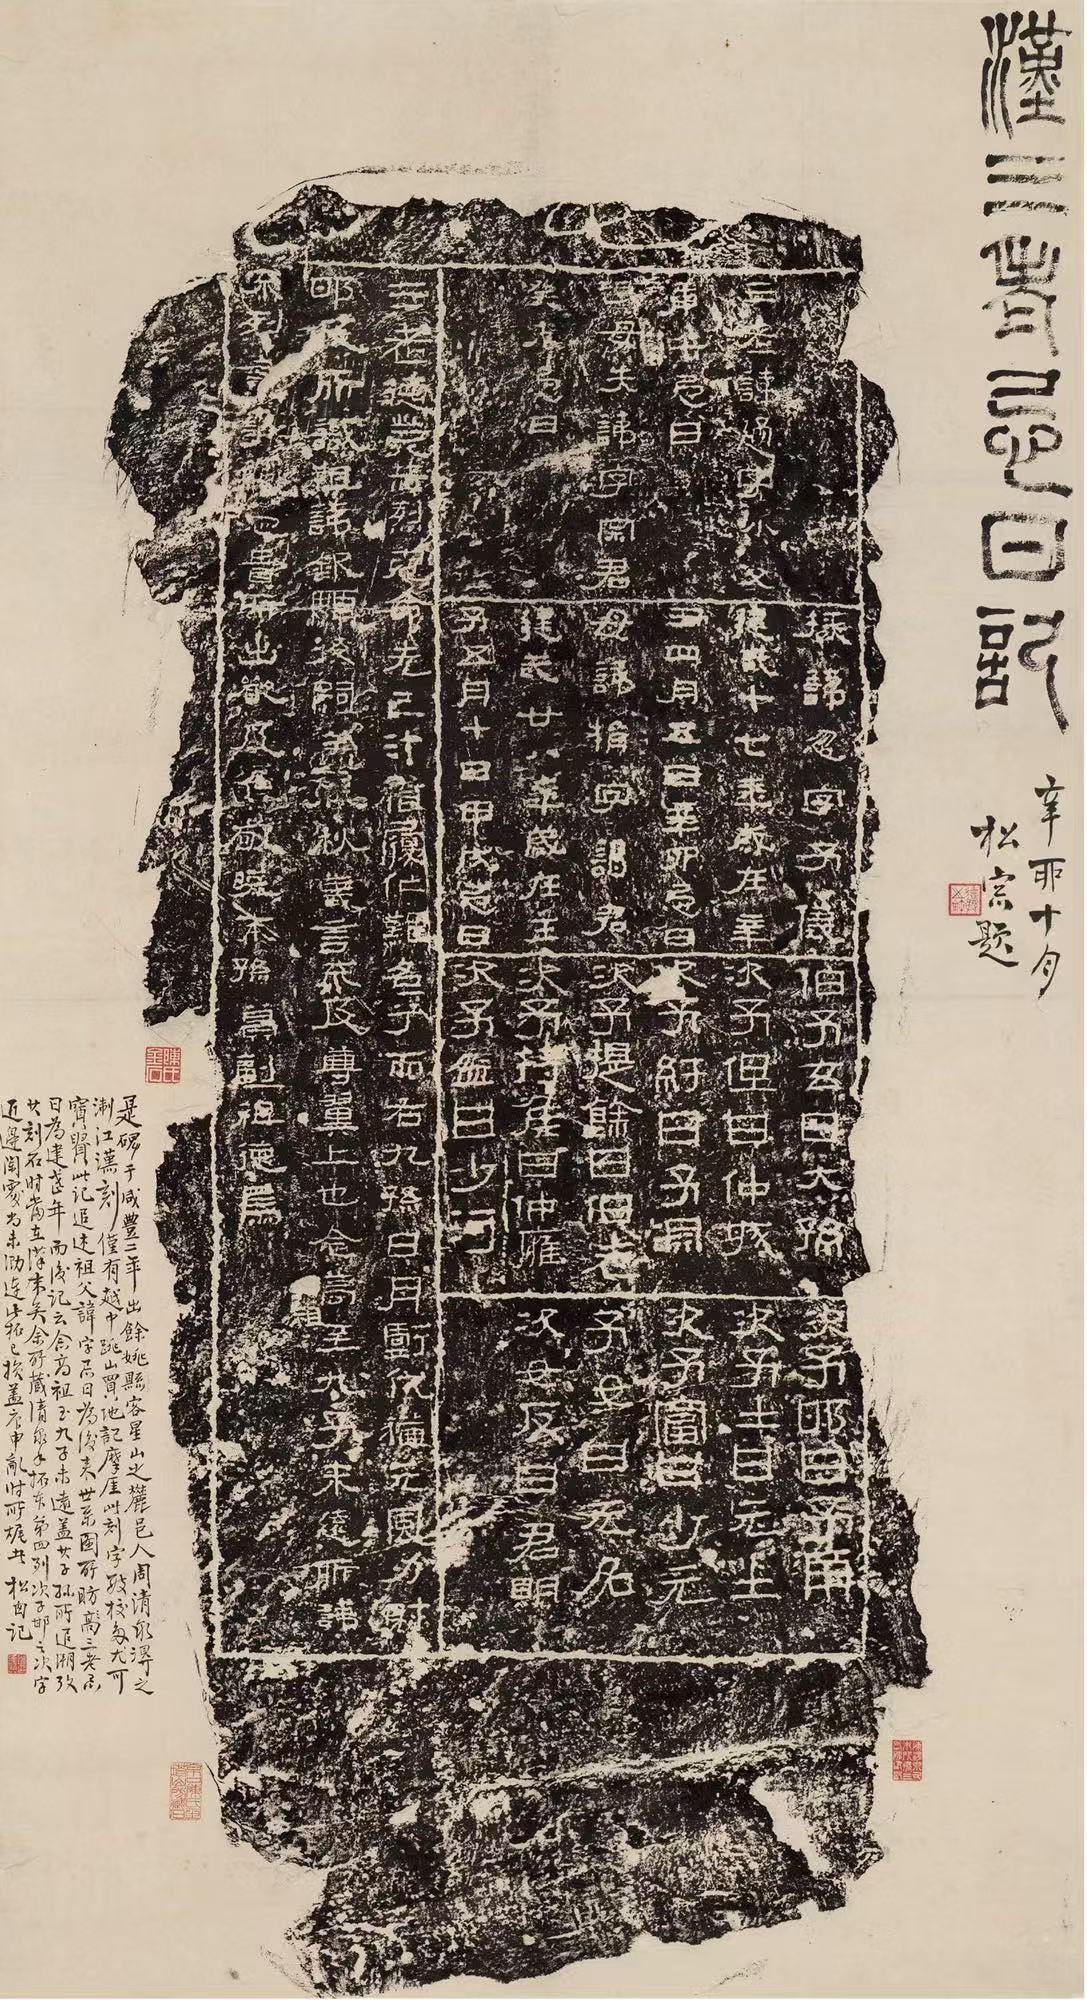 漢三老忌日記
辛酉十月
松窗題
三老諱通字小父
庚午忌日
祖母失諱字宗君
癸未忌日
掾諱忽字子儀
建武十七年歲在辛
丑四月五日辛卯忌日
母諱捐字謁君
建武廿八年歲在壬
子五月十日甲戌忌日
伯子玄曰大孫
次子但曰仲城
次子紆曰子淵
次子提餘曰伯老
次子持侯曰仲雍
次子盈曰少河
次子邯曰子南
次子士曰元士
次子富曰少元
子女曰无名
次女反曰君明
三老德業赫烈克命先己汁稽履仁難名兮而右九孫日月虧代猶元風力射
邯及所識祖諱欽顯後嗣蓋春秋義言不及尊翼上也念高祖至九子未遠所諱
不列言事觸忌貴所出嚴及焦敬曉末孫冀副祖德焉
是碑于咸豐二年出餘姚縣客星山之麓邑人周清泉得之
浙江漢刻僅有越中跳山買地記摩厓此刻字數校多尤可
寶貴此記追述祖父諱字忌日為後來世系圖所昉三老忌
日為建武年而後記云念高祖至九子未遠蓋其子孫所追溯
其刻石時當在漢末矣余所藏清泉手拓本第四列次子邯之次字
近邊闌處尚未泐連此拓已損蓋庚申亂時所 松窗記